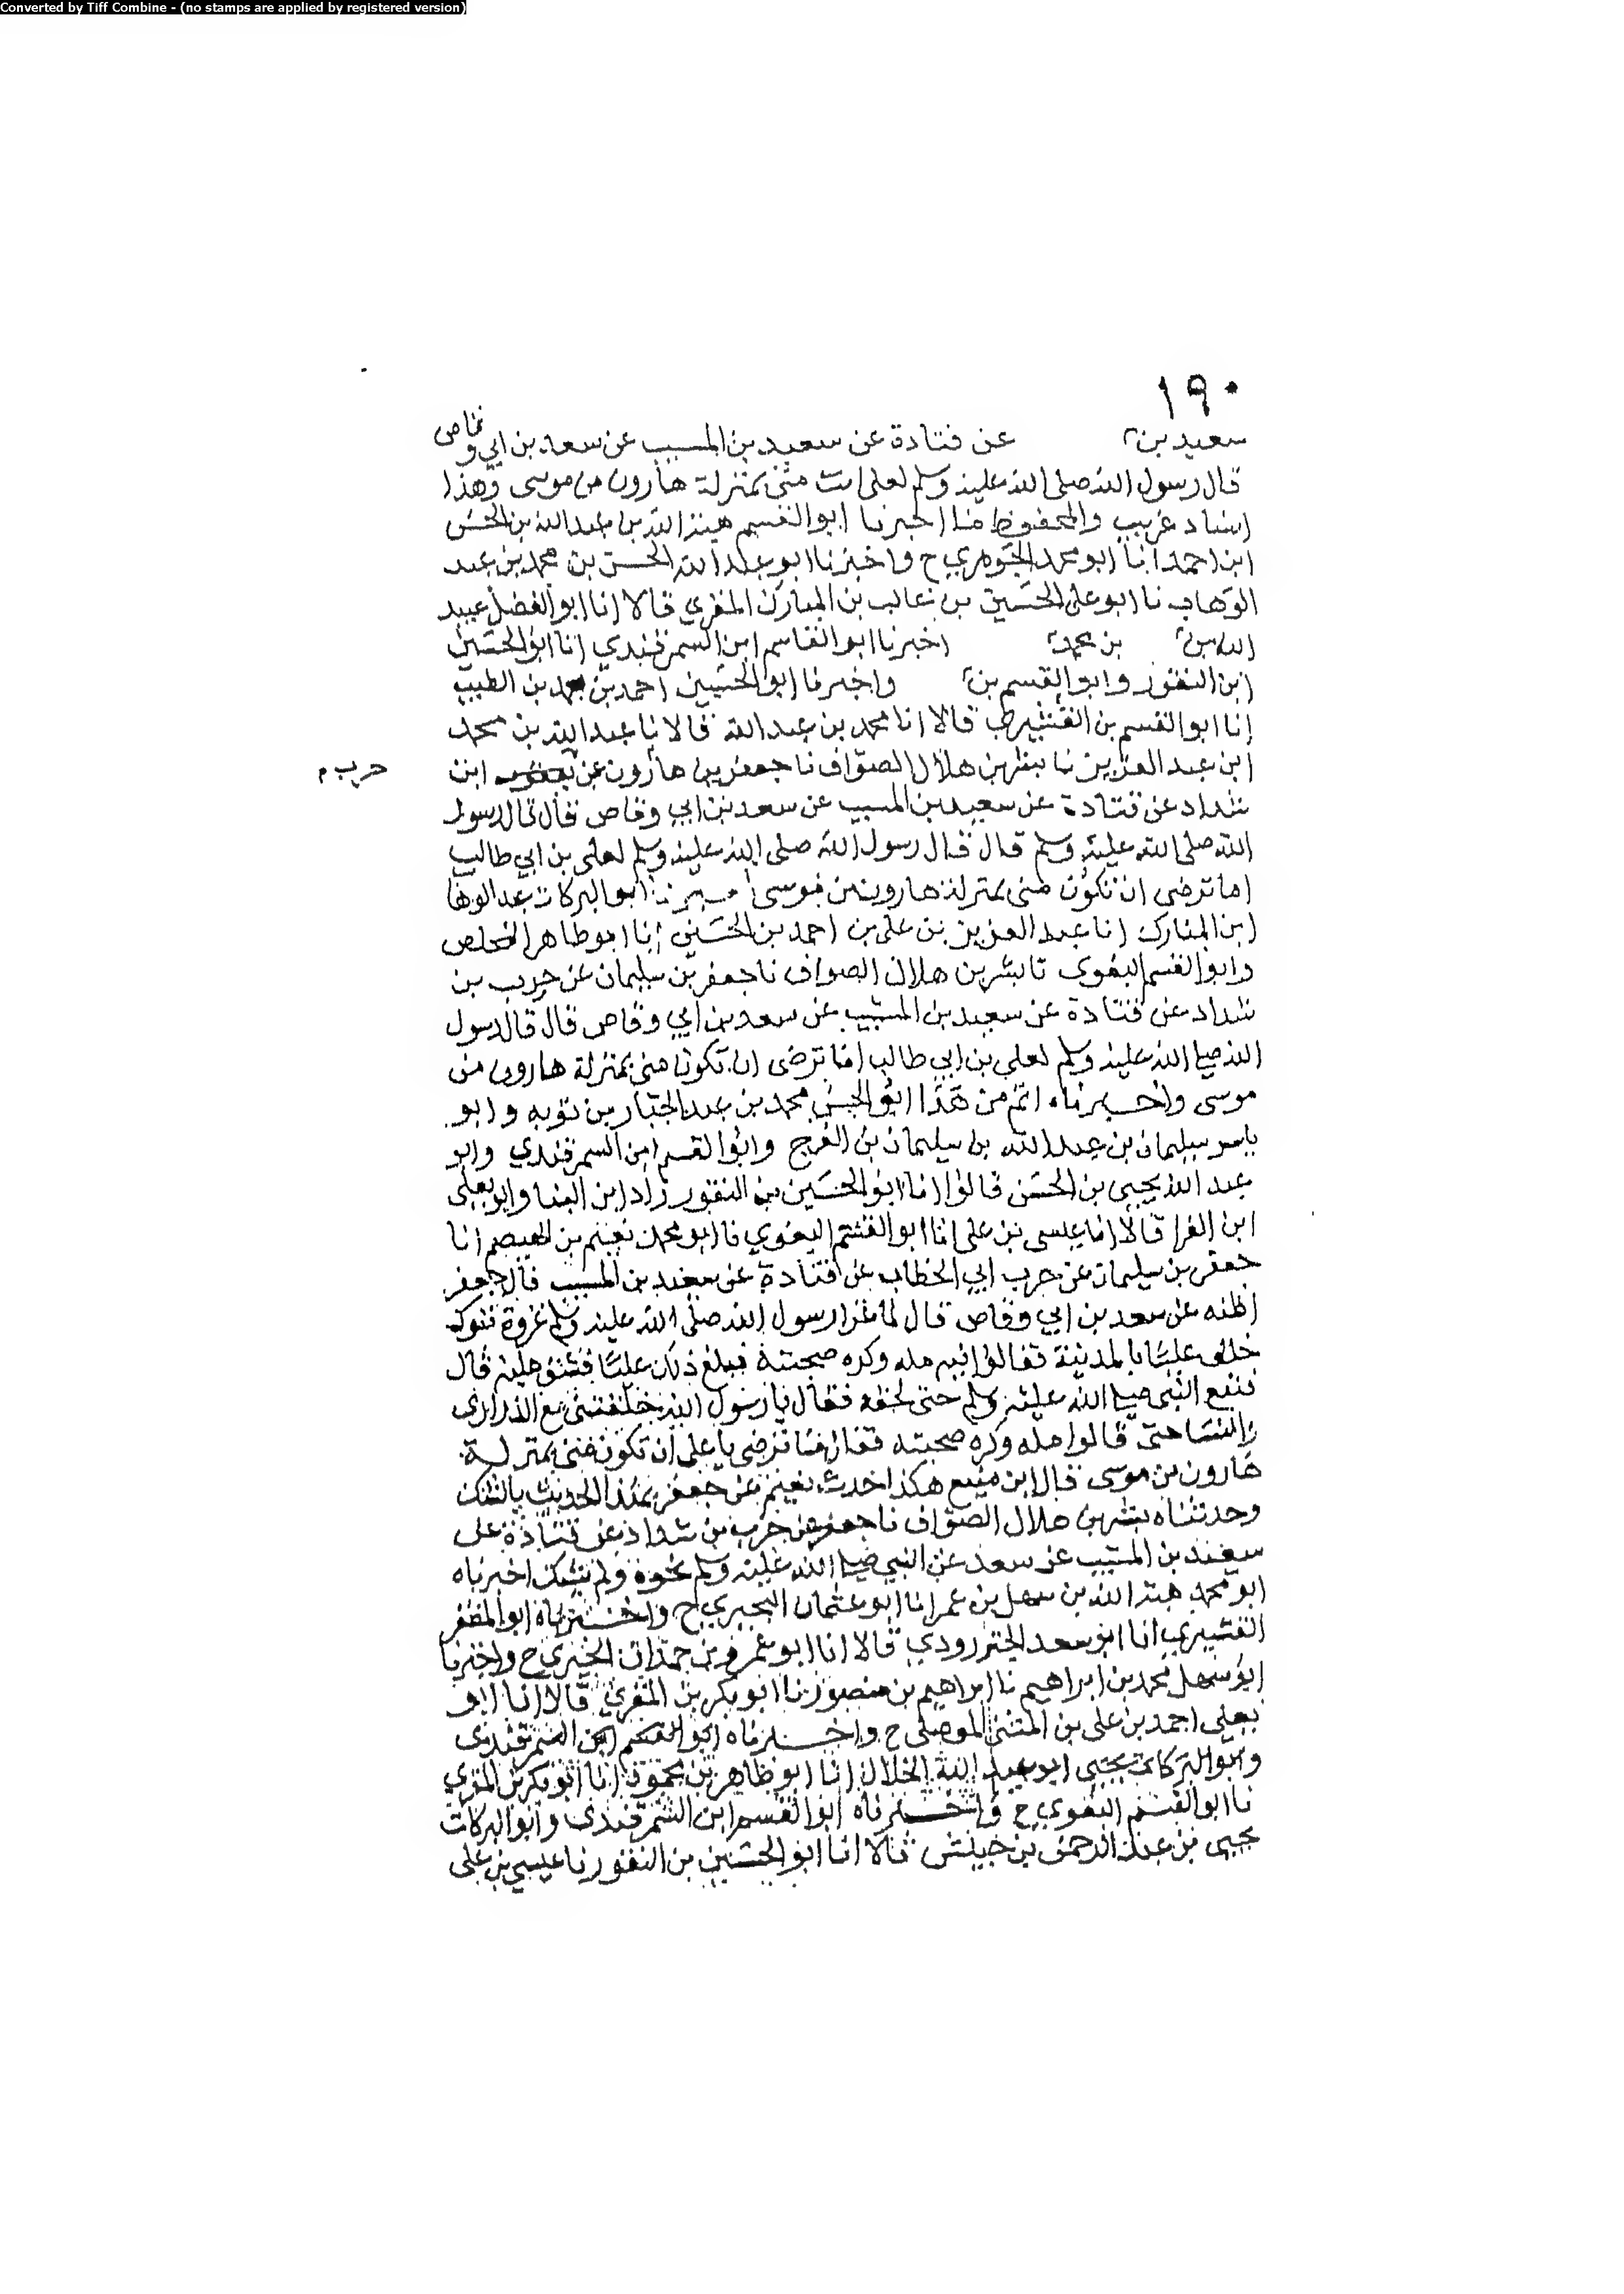 Converted by Tiff Combine - (no stamps are applied by registered version)
١٩٠
سعيد بن عن قتادة عن سعيد بن المسيب عن سعد بن ابي وقاص
قال رسول الله صلى الله عليه وسلم لعلى انت منى بمنزلة هارون من موسى وهذا
اسناد غريب والمحفوظ ما اخبرنا ابو القسم هبة الله بن عبد الله بن الحسن
ابن احمد انا ابو محمد الجوهري ح واخبرنا ابو عبد الله الحسن بن محمد بن عبد
الوهاب نا ابو على الحسين بن غالب بن المبارك المقري قالا انا ابو الفضل عبيد
الله بن بن محمد اخبرنا ابو القاسم ابن السمرقندي انا ابو الحسين
ابن النقور وابو القسم بن واخبرنا ابو الحسين احمد بن محمد بن الطيب
انا ابو القسم بن قالا انا محمد بن عبد الله قالا نا عبد الله بن محمد
ابن عبد العزيز نا بشر بن هلال الصواف نا جعفر بن هارون عن يعقوب ابن
حرب م
شداد عن قتادة عن سعيد بن المسيب عن سعد بن ابي وقاص قال قال رسول
الله صلى الله عليه وسلم قال قال رسول الله صلى الله عليه وسلم لعلى بن ابي طالب
اما ترضى ان تكون منى بمنزلة هارون من موسى اخبرنا ابو البركات عبد الوها
ابن المبارك انا عبد العزيز بن على بن احمد بن الحسين انا ابو طاهر المخلص
وابو القسم البغوى نا بشر بن هلال الصواف نا جعفر بن سليمان عن حرب بن
شداد عن قتادة عن سعيد بن المسيب عن سعد بن ابي وقاص قال قال رسول
الله صلى الله عليه وسلم لعلى بن ابي طالب اما ترضى ان تكون منى بمنزلة هارون من
موسى واخبرناه اتم من هذا ابو الحسن محمد بن عبد الجبار بن توبه وابو
ياسر سليمان بن عبد الله بن سليمان بن الفرج وابو القسم ابن السمرقندي وابو
عبد الله يحيى بن الحسن قالوا انا ابو الحسين بن النقور زاد ابن البنا وابو يعلى
ابن الفرا قالا انا عيسى بن على انا ابو القسم البغوي نا ابو محمد نعيم بن الهيصم انا
جعفر بن سليمان عن حرب ابي الخطاب عن قتادة عن سعيد بن المسيب قال جعفر
اظنه عن سعد بن ابي وقاص قال لما غزا رسول الله صلى الله عليه وسلم غزوة تبوك
خلف عليا بالمدينة فقالوا فيه مله وكره صحبته فبلغ ذلك عليا فشق عليه قال
فتبع النبى صلى الله عليه وسلم حتى لحقه فقال يا رسول الله خلفتنى مع الذراري
والنسا حتى قالوا مله وكره صحبته فقال ما ترضى يا على ان تكون منى بمنزلة
هارون من موسى قال ابن منيع هكذا حدث نعيم عن جعفر بهذا الحديث بالشك
وحدثناه بشر بن هلال الصواف نا جعفر عن حرب بن شداد عن قتادة على
سعيد بن المسيب عن سعد عن النبي صلى الله عليه وسلم نحوه ولم يشك اخبرناه
ابو محمد هبة الله بن سهل بن عمر انا ابو عثمان البحيري ح واخبرناه ابو المظفر
القشيري انا ابو سعد الجنزرودي قالا انا ابو عمرو بن حمدان الحيري ح واخبرنا
ابو سهل محمد بن ابراهيم نا ابراهيم بن منصور نا ابو بكر بن المقري قالا انا ابو
يعلى احمد بن على بن المثنى الموصلى ح واخبرناه ابو القسم ابن السمرقندى
وابو البركات يحيى ابو عبد الله الخلال انا ابو طاهر بن محمود انا ابو بكر بن المقري
نا ابو القسم البغوي ح واخبرناه ابو القسم ابن السمرقندى وابو البركات
يحيى بن عبد الرحمن بن حبيش قالا انا ابو الحسين بن النقور نا عيسي بن على